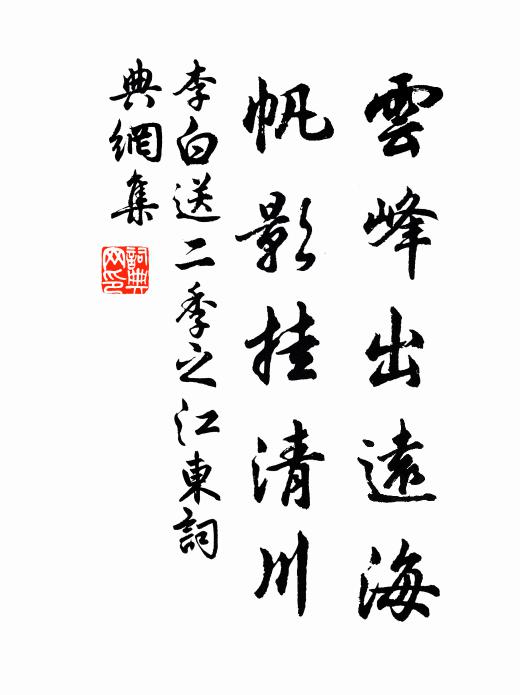 雲峰出遠海
帆影挂清川
李白送二季之江東詞
典網集
詞典网印